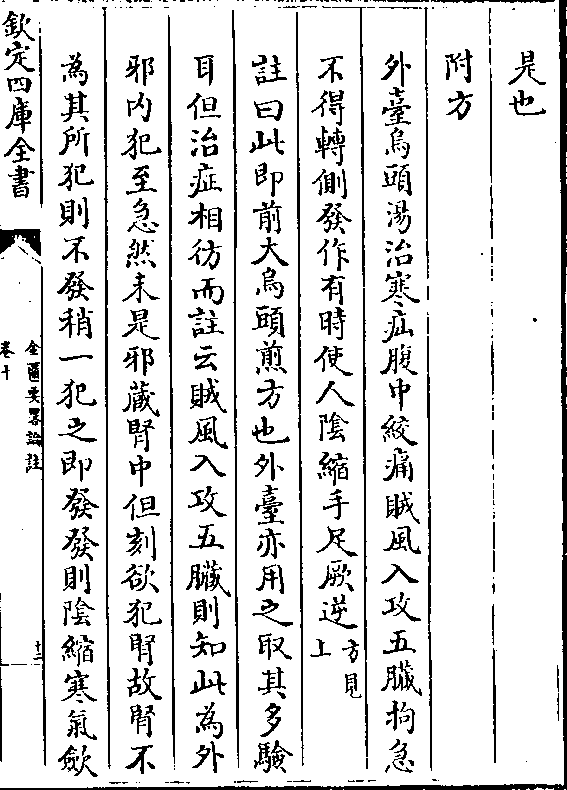 是也
附方
外臺烏頭湯治寒疝腹中絞痛賊風入攻五臟拘急
不得轉側發作有時使人陰縮手足厥逆方見上
註曰此即前大烏頭煎方也外臺亦用之取其多驗
耳但治症相彷而註云賊風入攻五臟則知此為外
邪内犯至急然未是邪藏腎中但刻欲犯腎故腎不
為其所犯則不發稍一犯之即發發則陰縮寒氣歛
欽定四庫全書
金匱要畧論註
卷十
十二